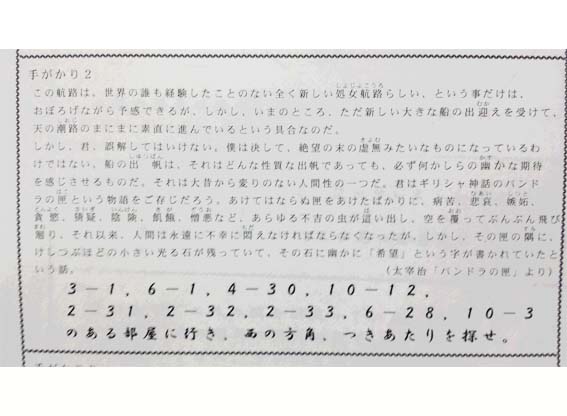 手がかり2
この航路は。世界の誰も経験したことのない全く新しい処女航路らしい、という事だけは、
おぼろげながら予感できるが、しかし、いまのところ、ただ新しい大きな船の出迎えを受けて、
天の潮路のまにまに素直に進んでいるという具合なのだ。
しかし、君、誤解してはいけない。僕は決して、絶望の末の虚無みたいなものになっているわ
けではない。船の出帆は、それはどんな性質な出帆であっても、必ず何かしらの幽かな期待
を感じさせるものだ。それは大昔から変りのない人間性の一つだ。君はギリシャ神話のパンド
ラの匣という物語をご存じだろう。あけてはならぬ匣をあけたばかりに、病苦、悲哀、嫉妬、
貪慾、猜疑、陰険、飢餓、憎悪など、あらゆる不吉の虫が這い出し、空を覆ってぶんぶん飛び
廻り、それ以来、人間は永遠に不幸に悶えなければならなくなったが、しかし、その匣の隅に、
けしつぶほどの小さい光る石が残っていて、その石に幽かに「希望」という字が書かれていたと
いう話。
(太宰治「パンドラの匣」より)
3-1,6-1,4-30,10-12,
2-31,2-32,2-33,6-28,10-3
のある部屋に行き、西の方角、つきあたりを探せ。